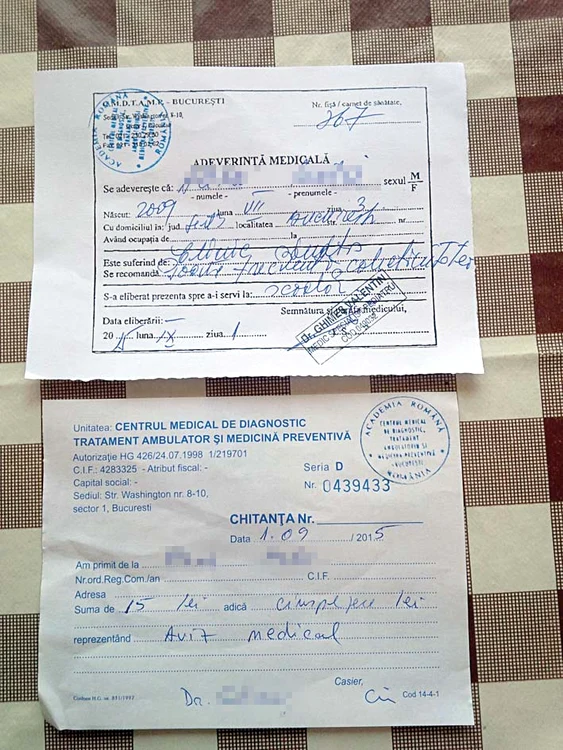 C.M.D.T.A.M.P. - BUCUREŞTI
Nr. fişă / carnet de sănătate,
267
ACADEMIA ROMÂNĂ
ADEVERINŢĂ MEDICALĂ
Se adevereşte că: sexul M/F
- numele - - prenumele -
Născut: 2009 luna VII ziua 3
Cu domiciliul în: jud. localitatea Bucureşti str. nr.
Având ocupaţia de la
Este suferind de: Clinic sănătos
Se recomandă poate frecventa colectivitatea
S-a eliberat prezenta spre a-i servi la: şcolar
Semnătura şi parafa medicului,
Dr. GHIMPU VALENTIN
MEDIC
Data eliberării:
20 15 luna IX ziua 1
Unitatea: CENTRUL MEDICAL DE DIAGNOSTIC
TRATAMENT AMBULATOR ŞI MEDICINĂ PREVENTIVĂ
Autorizaţie HG 426/24.07.1998 1/219701
C.I.F.: 4283325 - Atribut fiscal: -
Capital social: -
Sediul: Str. Washington nr. 8-10,
sector 1, Bucuresti
ACADEMIA ROMÂNĂ
CENTRUL MEDICAL
DE DIAGNOSTIC,
TRATAMENT
AMBULATORIU SI
MEDICINA PREVENTIVA
BUCURESTI
ROMÂNIA
Seria D
Nr. 0439433
CHITANŢA Nr.
Data 1.09 / 2015
Am primit de la
Nr.ord.Reg.Com./an C.I.F.
Adresa
Suma de 15 lei adică cinsprezece lei
reprezentând Aviz medical
Casier,
Conform H.G. nr. 831/1997 Dr. Cod 14-4-1